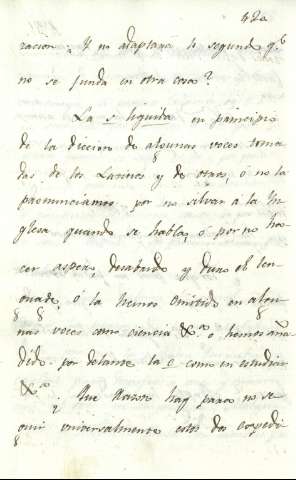 racion; Y no adaptará lo segundo q.e
no se funda en otra cosa?
La s liquida en principio
de la diccion de algunas voces toma
das de los Latinos y de otros, ó no la
pronunciamos por no silvar á la Yn
glesa quando se habla, ó por no ha
cer aspero, desabrido y duro el len
guage, ó la hemos omitido en algu
nas voces como ciencia &.a ó hemos aña
dido por delante la e como en estudiar
&.a ¿Que razon hay para no se
guir universalmente estos dos expedi